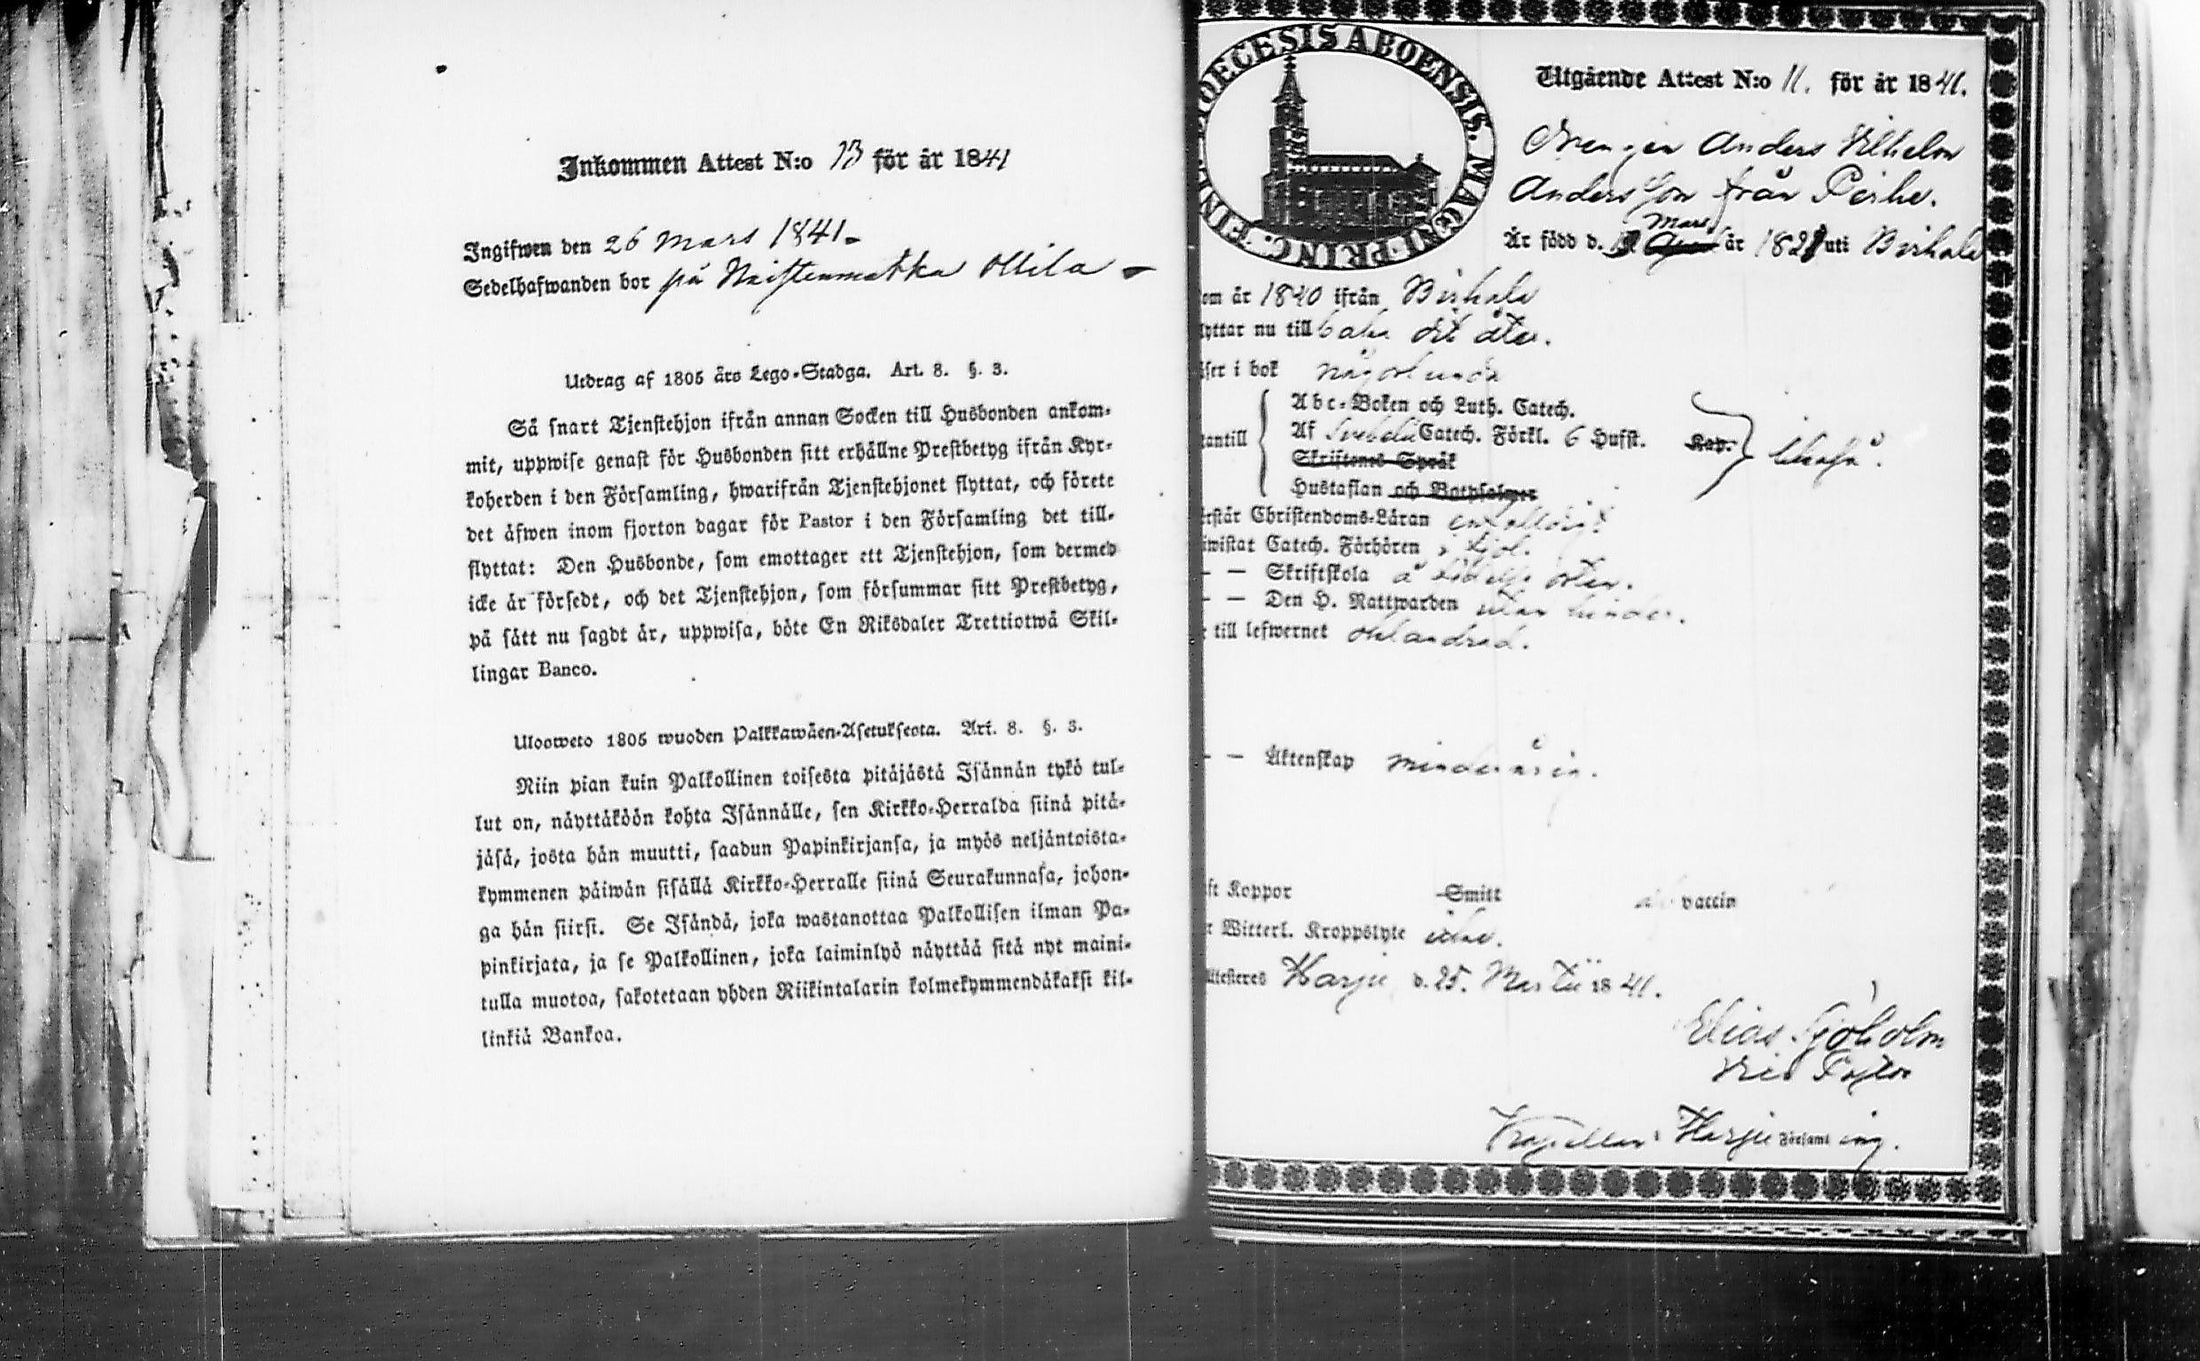 Inkommen Attest N:o 13 för år 1841
Ingifwen den 26 Mars 1841.
Sedelhafwanden bor på Naistenmatka Ollila
Utdrag af 1805 års Lego-Stadga. Art. 8. §. 3.
Så snart Tjenstehjon ifrån annan Socken till Husbonden ankom-
mit, uppwise genast för Husbonden sitt erhållne Prestbetyg ifrån Kyr-
koherden i den Församling, hwarifrån Tjenstehjonet flyttat, och förete
det äfwen inom fjorton dagar för Pastor i den Församling det till-
flyttat: Den Husbonde, som emottager ett Tjenstehjon, som dermed
icke är försedt, och det Tjenstehjon, som försummar sitt Prestbetyg,
på sätt nu sagdt är, uppwisa, böte En Riksdaler Trettiotwå Skil-
lingar Banco.
Ulosweto 1805 wuoden Palkkawäen-Asetuksesta. Art. 8. §. 3.
Niin pian kuin Palkollinen toisesta pitäjästä Isännän tykö tul-
lut on, näyttäköön kohta Isännälle, sen Kirkko-Herralda siinä pitä-
jäsä, josta hän muutti, saadun Papinkirjansa, ja myös neljäntoista-
kymmenen päiwän sisällä Kirkko-Herralle siinä Seurakunnasa, johon-
ga hän siirsi. Se Isändä, joka wastanottaa Palkollisen ilman Pa-
pinkirjata, ja se Palkollinen, joka laiminlyö näyttää sitä nyt maini-
tulla muotoa, sakotetaan yhden Riikintalarin kolmekymmendäkaksi kil-
linkiä Bankoa.
DIOECESIS ABOENSIS. MAGNI PRINC. FINL.
Utgående Attest N:o 11. för år 1841.
Drengen Anders Vilhelm
Andersson från Pirhe.
Mars
Är född d. år 1821 uti Birkala
om år 1840 ifrån Birkala
lyttar nu till baka dit åter.
äser i bok någorlunda
Abc-Boken och Luth. Catech.
tantill Af Svebelii Catech. Förkl. 6 Hufst. Kap.
Skriftenes Språk
Hustaflan och Botpsalmer
rstår Christendoms-Läran enfaldigt
iwistat Catech. Förhören
— — Skriftskola å
— — Den H. Nattwarden utan hinder.
till lefwernet oklandrad.
— — Äktenskap minderårig.
ft Koppor Smitt vaccin
r Witterl. Kroppslyte utan.
ttesteres Harju d. 25. Martii 1841.
Elias Sjöholm
Vice Pastor
Kapellans Harju Församling.